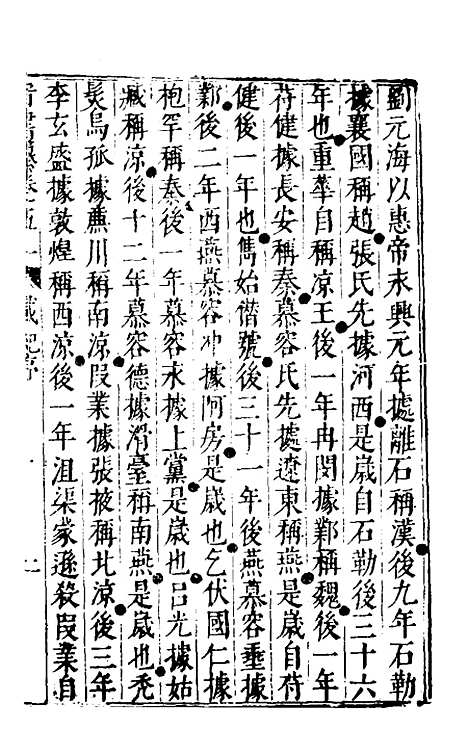 劉元海以惠帝永興元年據離石稱漢後九年石勒
據襄國稱趙張氏先據河西是歲自石勒後三十六
年也重華自稱凉王後一年冉閔據鄴稱魏後一年
苻健據長安稱秦慕容氏先據遼東稱燕是歲自苻
健後一年也雋始僭號後三十一年後燕慕容垂據
鄴後二年西燕慕容冲據阿房是歲也乞伏國仁據
枹罕稱秦後一年慕容永據上黨是歲也呂光據姑
臧稱凉後十二年慕容德據滑臺稱南燕是歲也禿
髮烏孤據廉川稱南凉段業據張掖稱北凉後三年
李玄盛據敦煌稱西凉後一年沮渠蒙遜殺段業自
載記序